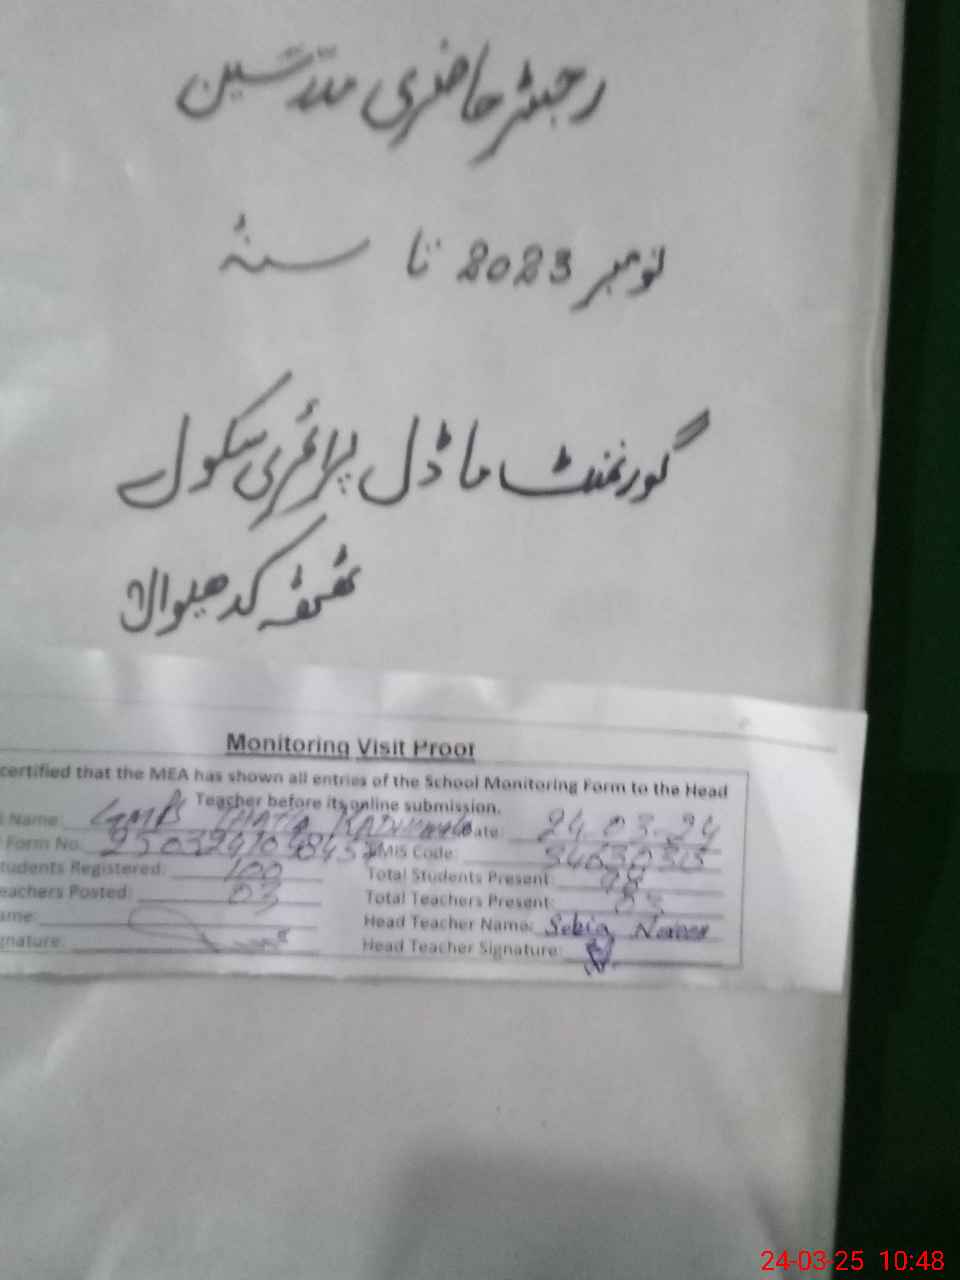 رجسٹر حاضری مدرسین
نومبر 2023 تا سنہ
گورنمنٹ ماڈل پرائمری سکول
ٹھٹھہ کدھیوالہ
Monitoring Visit Proof
certified that the MEA has shown all entries of the School Monitoring Form to the Head
Teacher before its online submission.
Name: GMPS THATTA KADHIWALA Date: 24.03.24
Form No: MIS Code:
tudents Registered: 100 Total Students Present: 98
eachers Posted: 03 Total Teachers Present: 03
ame: Head Teacher Name: Sobia Noreen
gnature: Head Teacher Signature:
24-03-25 10:48